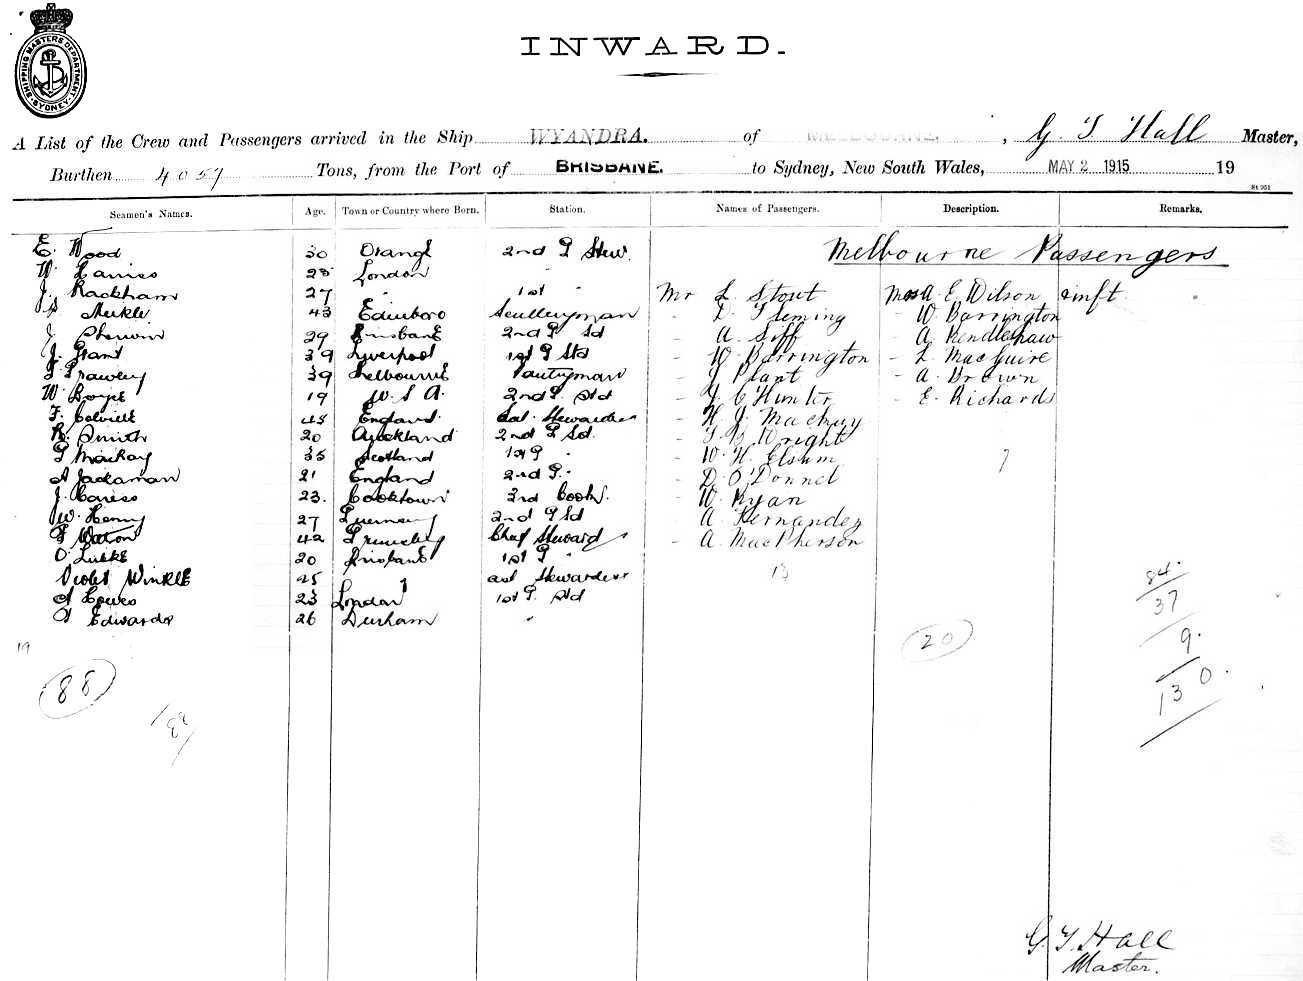 SHIPPING MASTERS DEPARTMENT
SYDNEY
INWARD.
A List of the Crew and Passengers arrived in the Ship WYANDRA. of MELBOURNE. , G. T Hall Master,
Burthen 4057 Tons, from the Port of BRISBANE. to Sydney, New South Wales, MAY 2 1915 19
St 951
Seamen's Names. Age. Town or Country where Born. Station. Names of Passengers. Description. Remarks.
Melbourne Passengers
E. Wood 30 Orange 2nd G Stew.
W. Harriss 28 London "
J. Rackham 27 " 1st " Mr L. Stout Mrs A. E. Wilson & inft
Meikle 43 Edinboro Sculleryman - D. Fleming - W Barrington
J Sherwin 29 Brisbane 2nd G Sd - A. Siff - A Kendlehaw
J. Grant 39 Liverpool 1st G Std - W. Barrington - L. MacGuire
Frawley 39 Melbourne Pantryman - J Plant - A. Brown
W. Boype 19 W. S A. 2nd G. Std - J. C Hunter - E. Richards
F. Colville 45 England Sal. Stewardess - H. J. Mackay
R. Smith 20 Auckland 2nd G Sd. - Wright
Mackay 35 Scotland 1st G " - W. H. Elsum 7
A Jackaman 21 England 2nd G. " - D. O'Donnel
J. Cariss 23. Cooktown 3rd Cook. - W. Ryan
W. Henry 27 Guernsey 2nd G Sd - A. Hernandez
Watson 42 Grimsby Chief Steward - A. MacPherson
O' Luske 20 Brisbane 1st G " 13
Violet Winkle 25 " ast Stewardess 84.
A Howes 23 London 1st G. Std 37
Edwards 26 Durham "
19 20 9.
88 130.
130
G. T. Hall
Master.